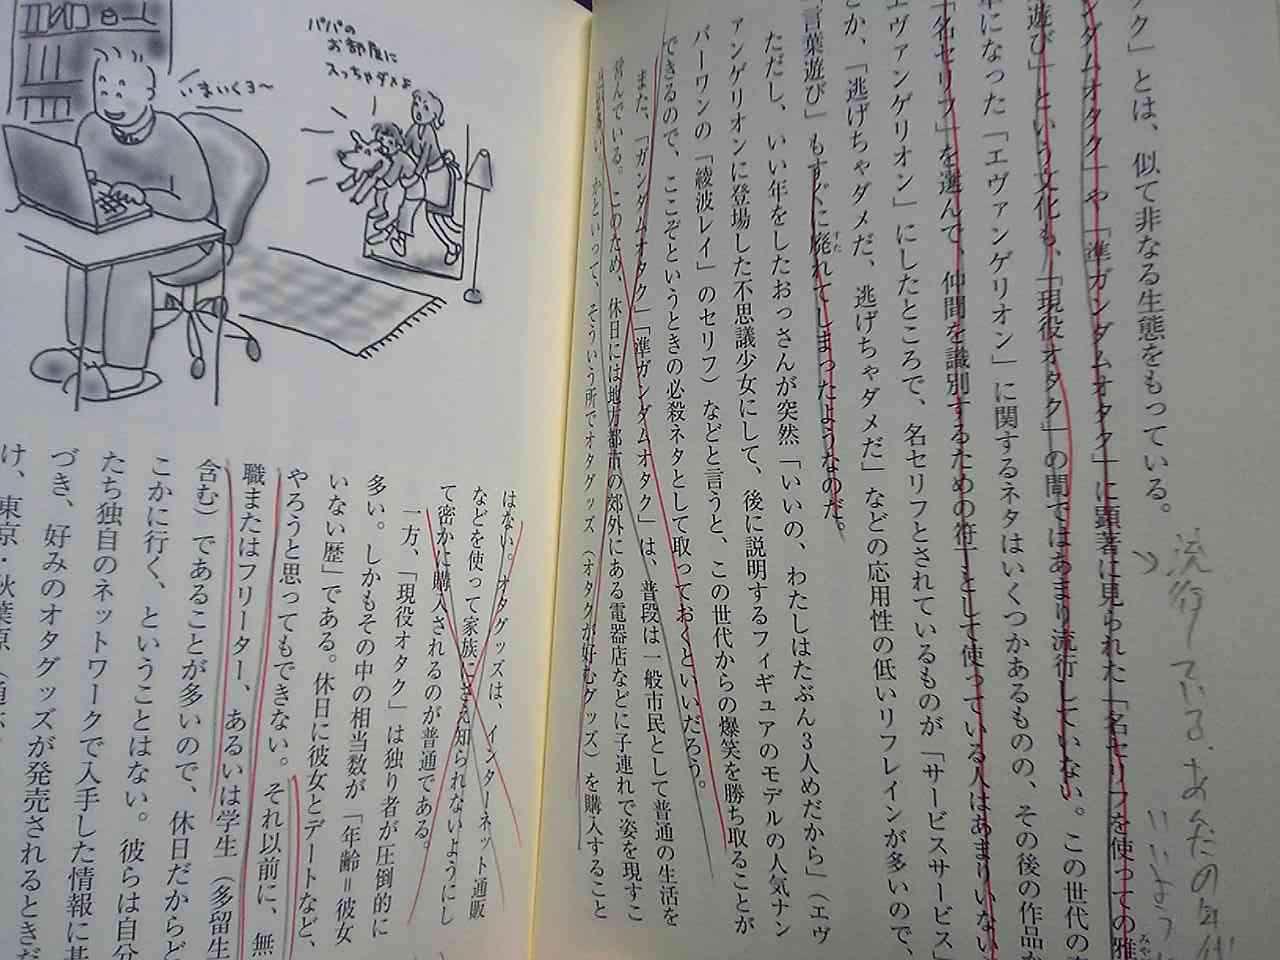 タク」とは、似て非なる生態をもっている。
ンダムオタク」や「準ガンダムオタク」に顕著に見られた「名セリフを使っての雅
遊び」という文化も、「現役オタク」の間ではあまり流行していない。この世代の
になった「エヴァンゲリオン」に関するネタはいくつかあるものの、その後の作品か
「名セリフ」を選んで、仲間を識別するための符丁として使っている人はあまりいない
エヴァンゲリオン」にしたところで、名セリフとされているものが「サービスサービス」
とか、「逃げちゃダメだ、逃げちゃダメだ」などの応用性の低いリフレインが多いので、
「言葉遊び」もすぐに廃れてしまったようなのだ。
ただし、いい年をしたおっさんが突然「いいの、わたしはたぶん3人めだから」（エヴ
ァンゲリオンに登場した不思議少女にして、後に説明するフィギュアのモデルの人気ナン
バーワンの「綾波レイ」のセリフ）などと言うと、この世代からの爆笑を勝ち取ることが
できるので、ここぞというときの必殺ネタとして取っておくといいだろう。
また、「ガンダムオタク」「準ガンダムオタク」は、普段は一般市民として普通の生活を
営んでいる。このため、休日には地方都市の郊外にある電器店などに子連れで姿を現すこ
かといって、そういう所でオタグッズ（オタクが好むグッズ）を購入すること
はない。オタグッズは、インターネット通販
などを使って家族にさえ知られないようにし
て密かに購入されるのが普通である。
一方、「現役オタク」は独り者が圧倒的に
多い。しかもその中の相当数が「年齢＝彼女
いない歴」である。休日に彼女とデートなど、
やろうと思ってもできない。それ以前に、無
職またはフリーター、あるいは学生（多留生
含む）であることが多いので、休日だからど
こかに行く、ということはない。彼らは自分
たち独自のネットワークで入手した情報に基
づき、好みのオタグッズが発売されるときだ
け、東京・秋葉原
パパの
お部屋に
入っちゃダメよ
いまいくヨ〜
流行している。あんたの年代